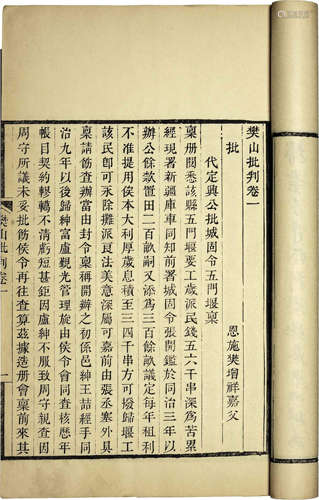 樊山批判卷一
恩施樊增祥嘉父
批
代定興公批城固令五門堰稟
稟册閱悉該縣五門堰要工歲派民錢五六千串深為苦累
經現署新疆庫車同知前署城固令張開鑑於同治三年以
辦公餘款置田二百畝嗣又添爲三百餘畝議定每年租利
不准提用俟本大利厚歲息積至三四千串方可撥歸堰工
該民卽可永除攤派良法美意深屬可嘉前由張丞塞外具
稟請飭查辦當由封令稟稱開辦之初係邑紳王喆經手同
治九年以後歸紳富盧觀光管理旋由侯令會同查核歷年
帳目契約轇轕不清虧短甚鉅因盧紳不服致周守親查因
周守所議未妥批飭侯令再往查算茲據造册會稟前來其
樊山批判卷一
一